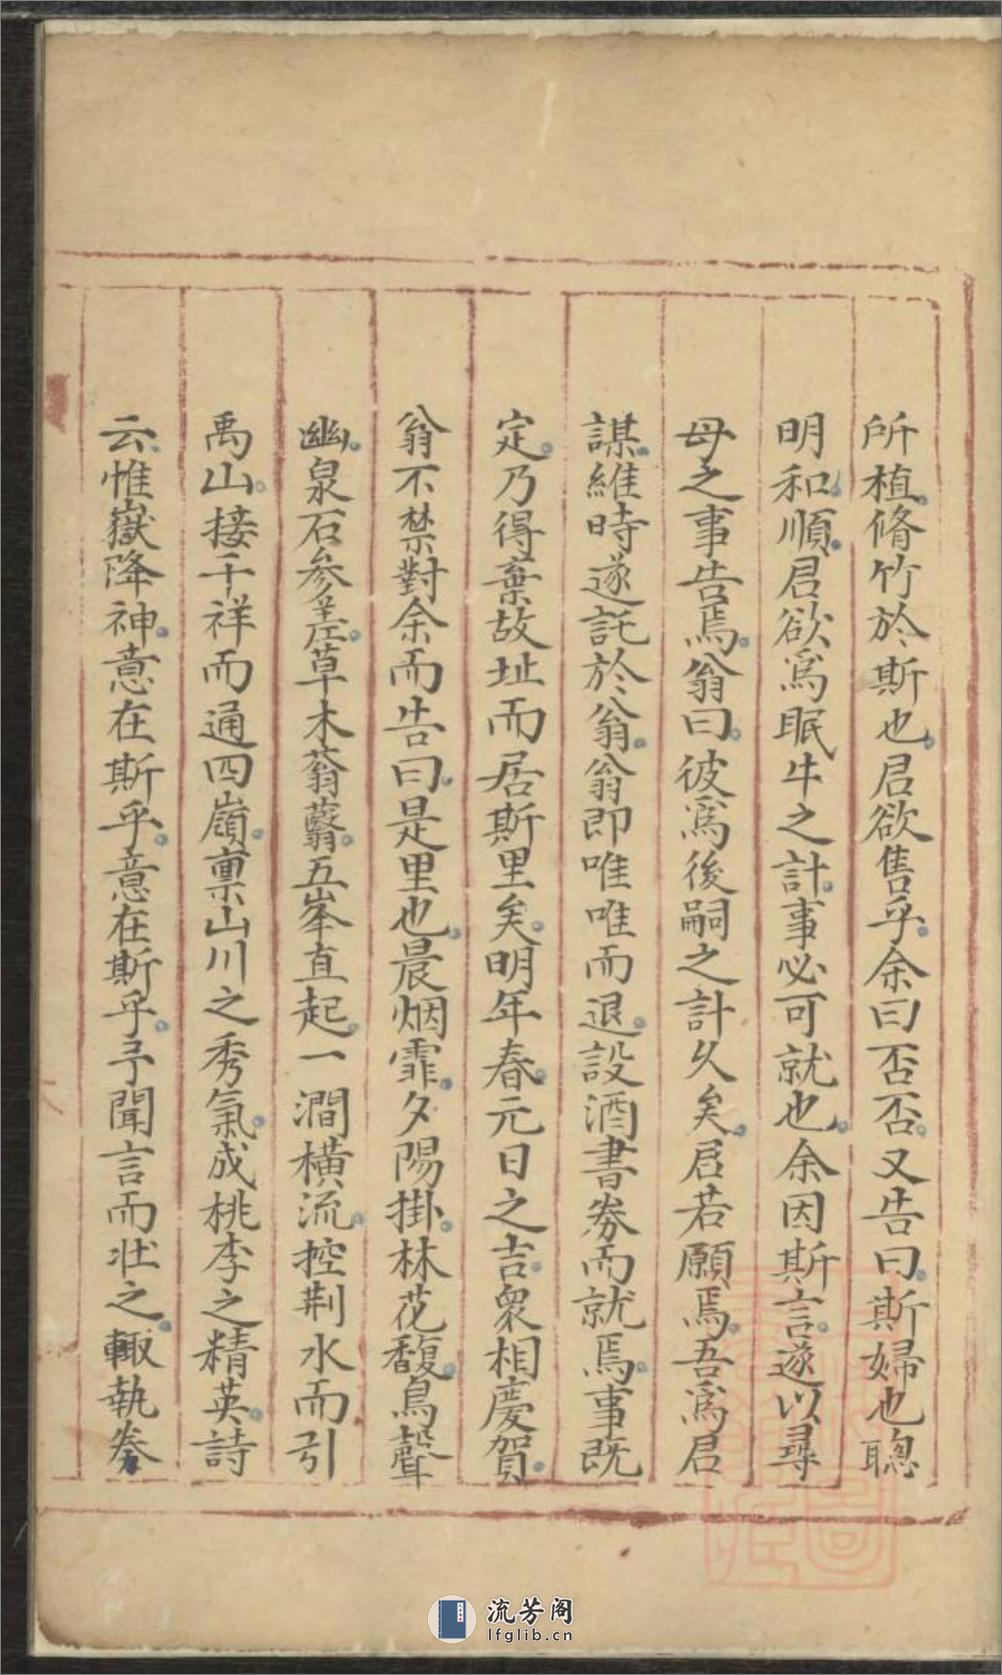 所植脩竹於斯也君欲售乎余曰否否又告曰斯婦也聰
明和順君欲為眠牛之計事必可就也余因斯言遂以尋
母之事告焉翁曰彼為後嗣之計久矣君若願焉吾為君
謀維時遂託於翁翁即唯唯而退設酒書劵而就焉事既
定乃得棄故址而居斯里矣明年春元日之吉衆相慶賀
翁不禁對余而告曰是里也晨烟霏夕陽掛林花馥鳥聲
幽泉石參差草木蓊蘙五峯直起一澗橫流控荆水而引
禹山接千祥而通四嶺禀山川之秀氣成桃李之精英詩
云惟嶽降神意在斯乎意在斯乎予聞言而壯之輙執劵
流芳阁
lfglib.cn